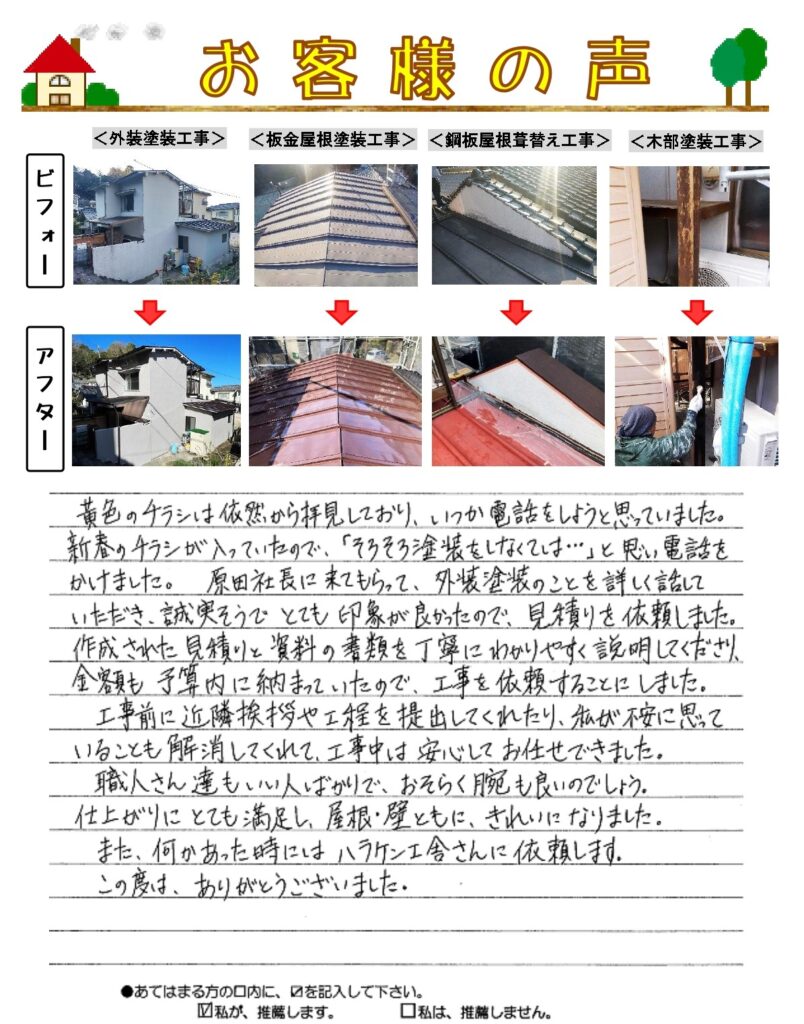 お客様の声
＜外装塗装工事＞
＜板金屋根塗装工事＞
＜鋼板屋根葺替え工事＞
＜木部塗装工事＞
ビフォー
アフター
黄色のチラシは依然から拝見しており、いつか電話をしようと思っていました。
新春のチラシが入っていたので、「そろそろ塗装をしなくては…」と思い電話を
かけました。 原田社長に来てもらって、外装塗装のことを詳しく話して
いただき、誠実そうでとても印象が良かったので、見積りを依頼しました。
作成された見積りと資料の書類を丁寧にわかりやすく説明してくださり、
金額も予算内に納まっていたので、工事を依頼することにしました。
工事前に近隣挨拶や工程を提出してくれたり、私が不安に思って
いることも解消してくれて、工事中は安心してお任せできました。
職人さん達もいい人ばかりで、おそらく腕も良いのでしょう。
仕上がりにとても満足し、屋根・壁ともに、きれいになりました。
また、何かあった時にはハラケン工舎さんに依頼します。
この度は、ありがとうございました。
●あてはまる方の口内に、☑を記入して下さい。
☑私が、推薦します。 □私は、推薦しません。